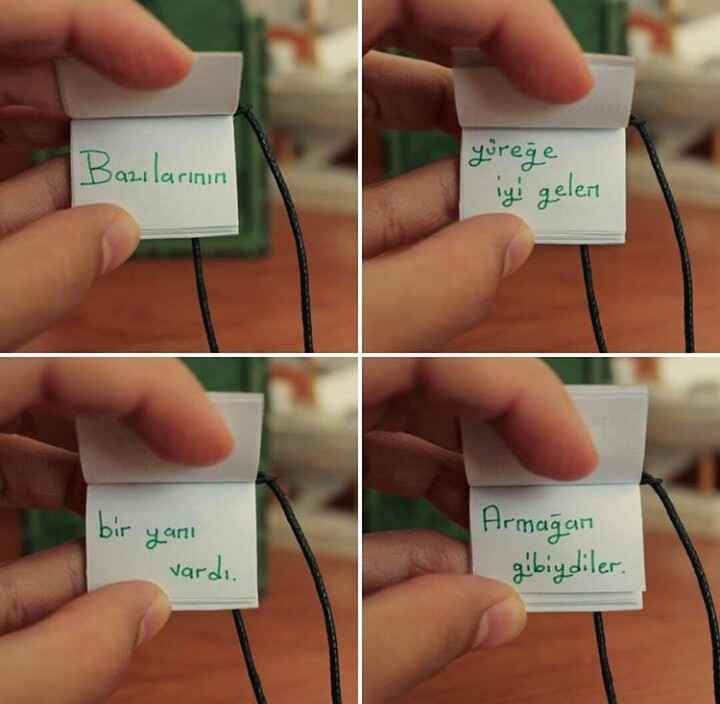 Bazılarının
yüreğe
iyi gelen
bir yanı
vardı.
Armağan
gibiydiler.